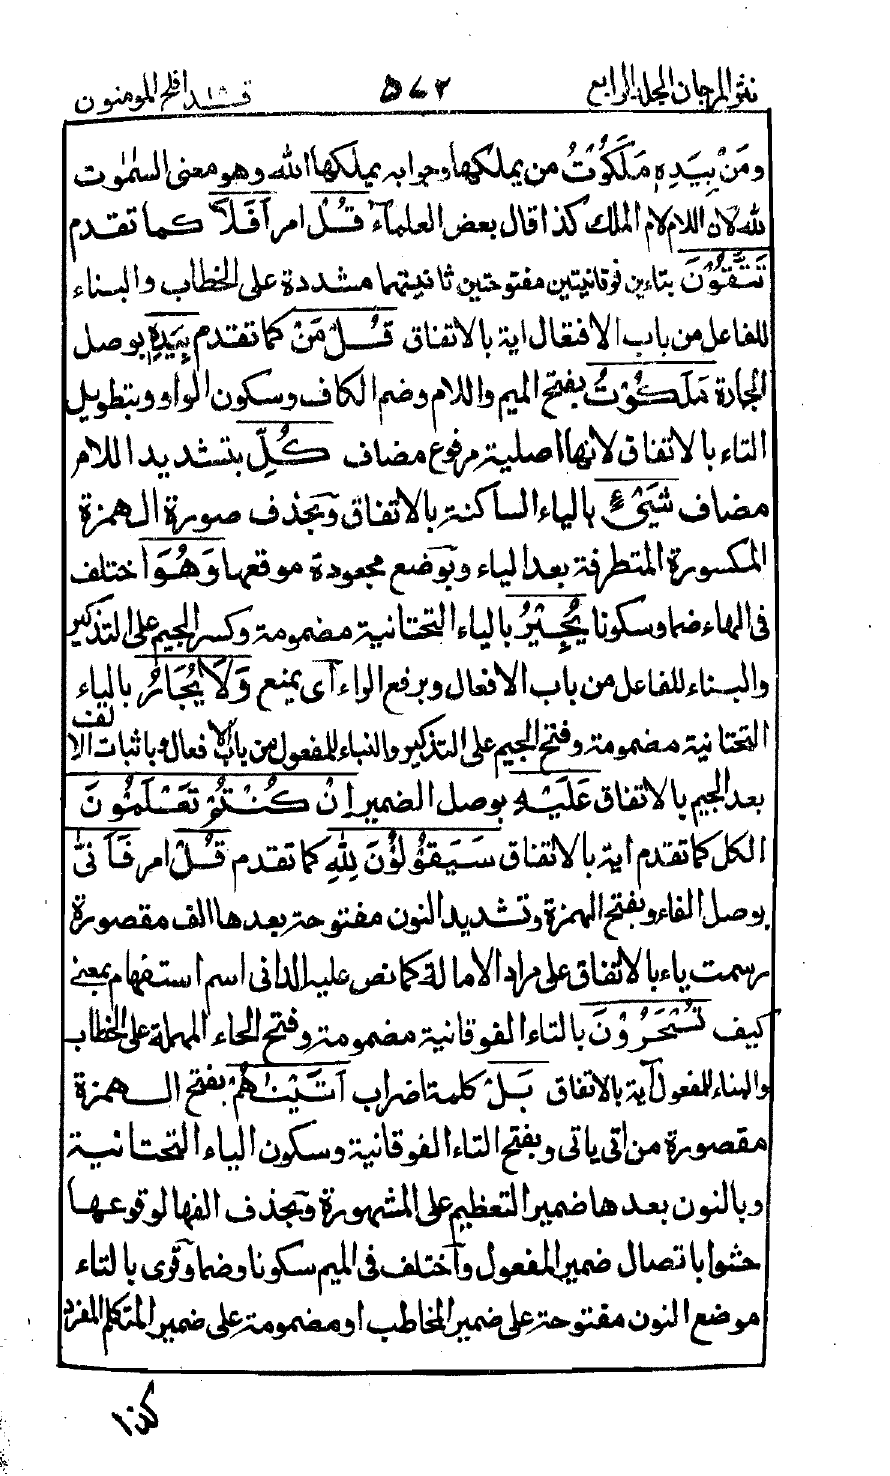 نثر المرجان المجلد الرابع ٥٧٢ قد افلح المومنون
ومَنْ بِيَدِهٖ مَلَكُوْتُ من يملكها وجوابه يملكها الله وهو معنى السمٰوٰت
لله لان اللام لام الملك كذا قال بعض العلماء قُلْ امر اَفَلَا كما تقدم
تَتَّقُوْنَ بتاءين فوقانيتين مفتوحتين ثانيتهما مشددة على الخطاب والبناء
للفاعل من باب الافتعال اية بالاتفاق قُلْ مَنْ كما تقدم بِيَدِهٖ بوصل
الجارة مَلَكُوْتُ بفتح الميم واللام وضم الكاف وسكون الواو وبتطويل
التاء بالاتفاق لانها اصلية مرفوع مضاف كُلِّ بتشديد اللام
مضاف شَيْءٍ بالياء الساكنة بالاتفاق وبحذف صورة الهمزة
المكسورة المتطرفة بعد الياء وبوضع مجعودة موقعها وَهُوَ اختلف
فى الهاء ضما وسكونا يُجِيْرُ بالياء التحتانية مضمومة وكسر الجيم على التذكير
والبناء للفاعل من باب الافعال وبرفع الراء اى يمنع وَلَا يُجَارُ بالياء
التحتانية مضمومة وفتح الجيم على التذكير والبناء للمفعول من باب الافعال وباثبات الالف
بعد الجيم بالاتفاق عَلَيْهِ بوصل الضمير اِنْ كُنْتُمْ تَعْلَمُوْنَ
الكل كما تقدم اية بالاتفاق سَيَقُوْلُوْنَ لِلّٰهِ كما تقدم قُلْ امر فَاَنّٰى
بوصل الفاء وبفتح الهمزة وتشديد النون مفتوحة بعدها الف مقصورة
رسمت ياء بالاتفاق على مراد الامالة كما نص عليه الدانى اسم استفهام بمعنى
كيف تُسْحَرُوْنَ بالتاء الفوقانية مضمومة وفتح الحاء المهملة على الخطاب
والبناء للمفعول اية بالاتفاق بَلْ كلمة اضراب اَتَيْنٰهُمْ بفتح الهمزة
مقصورة من اتى ياتى وبفتح التاء الفوقانية وسكون الياء التحتانية
وبالنون بعدها ضمير التعظيم على المشهورة وبحذف الفها لوقوعها
حشوا باتصال ضمير المفعول واختلف فى الميم سكونا وضما وقرى بالتاء
موضع النون مفتوحة على ضمير المخاطب او مضمومة على ضمير المتكلم المفرد
كذا